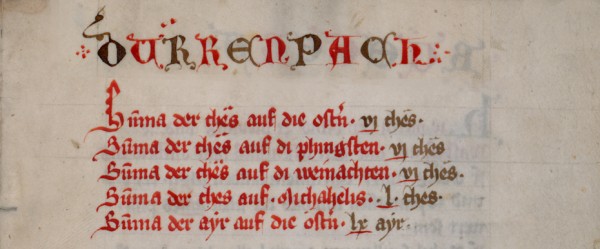 DÜRRENPACH
Sūma der chēs auf die ostn̄. vj chēs.
Sūma der chēs auf di phingsten. vj chēs
Sūma der chēs auf di weinachten. vj chēs.
Sūma der ches auf. Michahelis. l. ches.
Sūma der aÿr auf die ostn̄. lx aÿr.